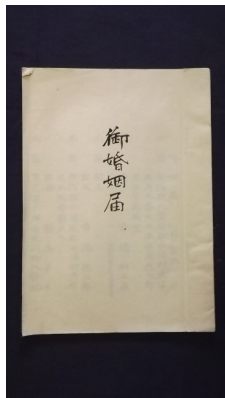 御婚姻届